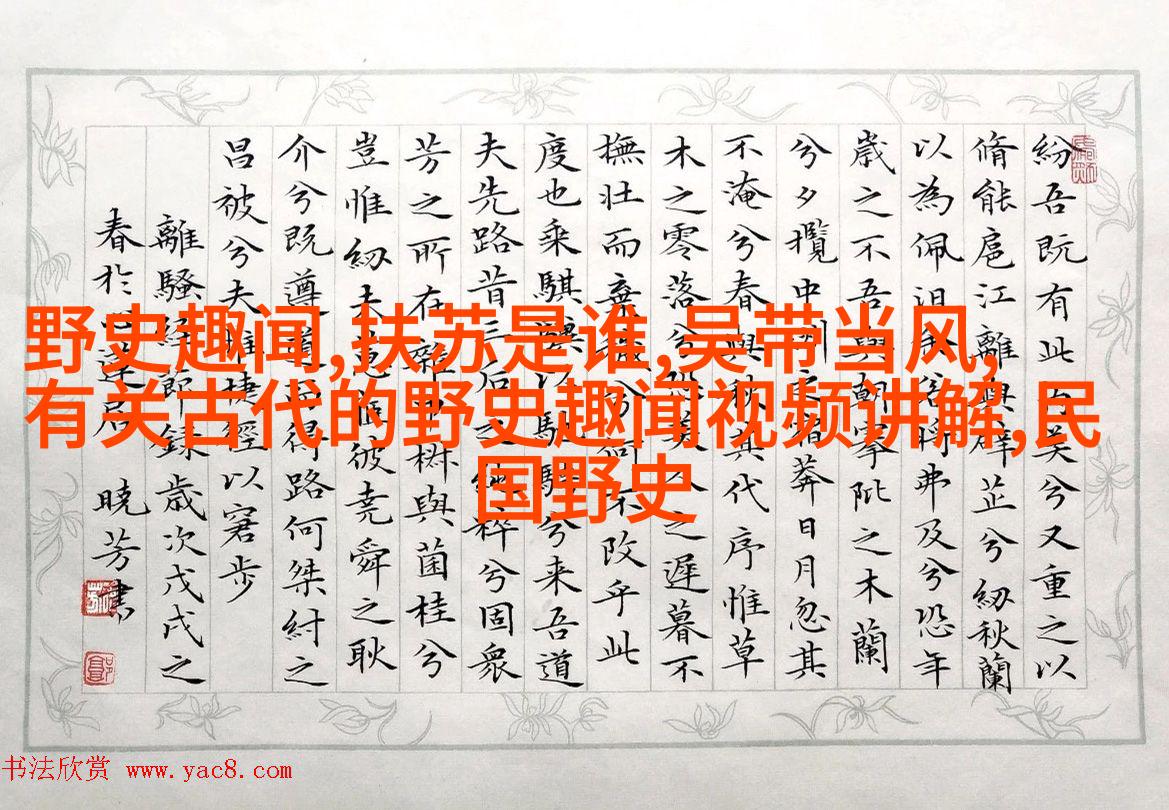 野史趣闻,扶苏是谁,吴带当风,
有关古代的野史趣闻视频讲解,民
国野史
紛吾既有此美兮又重之以
脩能扈江離與辟芷兮紉秋蘭
以為佩汩将弗及兮恐年
歲之不吾與朝搴阰之木蘭
兮夕攬中洲之宿莽日月忽其
不淹兮春與秋其代序惟草
木之零落兮恐美人之遲暮不
撫壯而棄穢兮何不改乎此
度也乘騏驥以馳騁兮来吾道
夫先路昔三后之純粹兮固衆
芳之所在雜申椒與菌桂兮
豈惟紉夫蕙茝彼堯舜之耿
介兮既遵道而得路何桀紂之
昌被兮夫惟捷徑以窘步
離騷經節錄歲次戊戌之
春於達居 曉芳書
书法欣赏 www.yac8.com